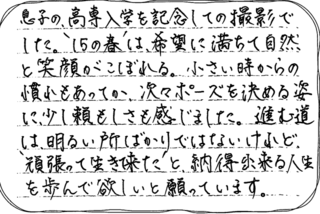 息子の、高専入学を記念しての撮影で
した。“15の春”は、希望に満ちて自然
と笑顔がこぼれる。小さい時からの
慣れもあってか、次々ポーズを決める姿
に少し頼もしさも感じました。進む道
は、明るい所ばかりではないけれど、
“頑張って生き来た”と、納得出来る人生
を歩んで欲しいと願っています。